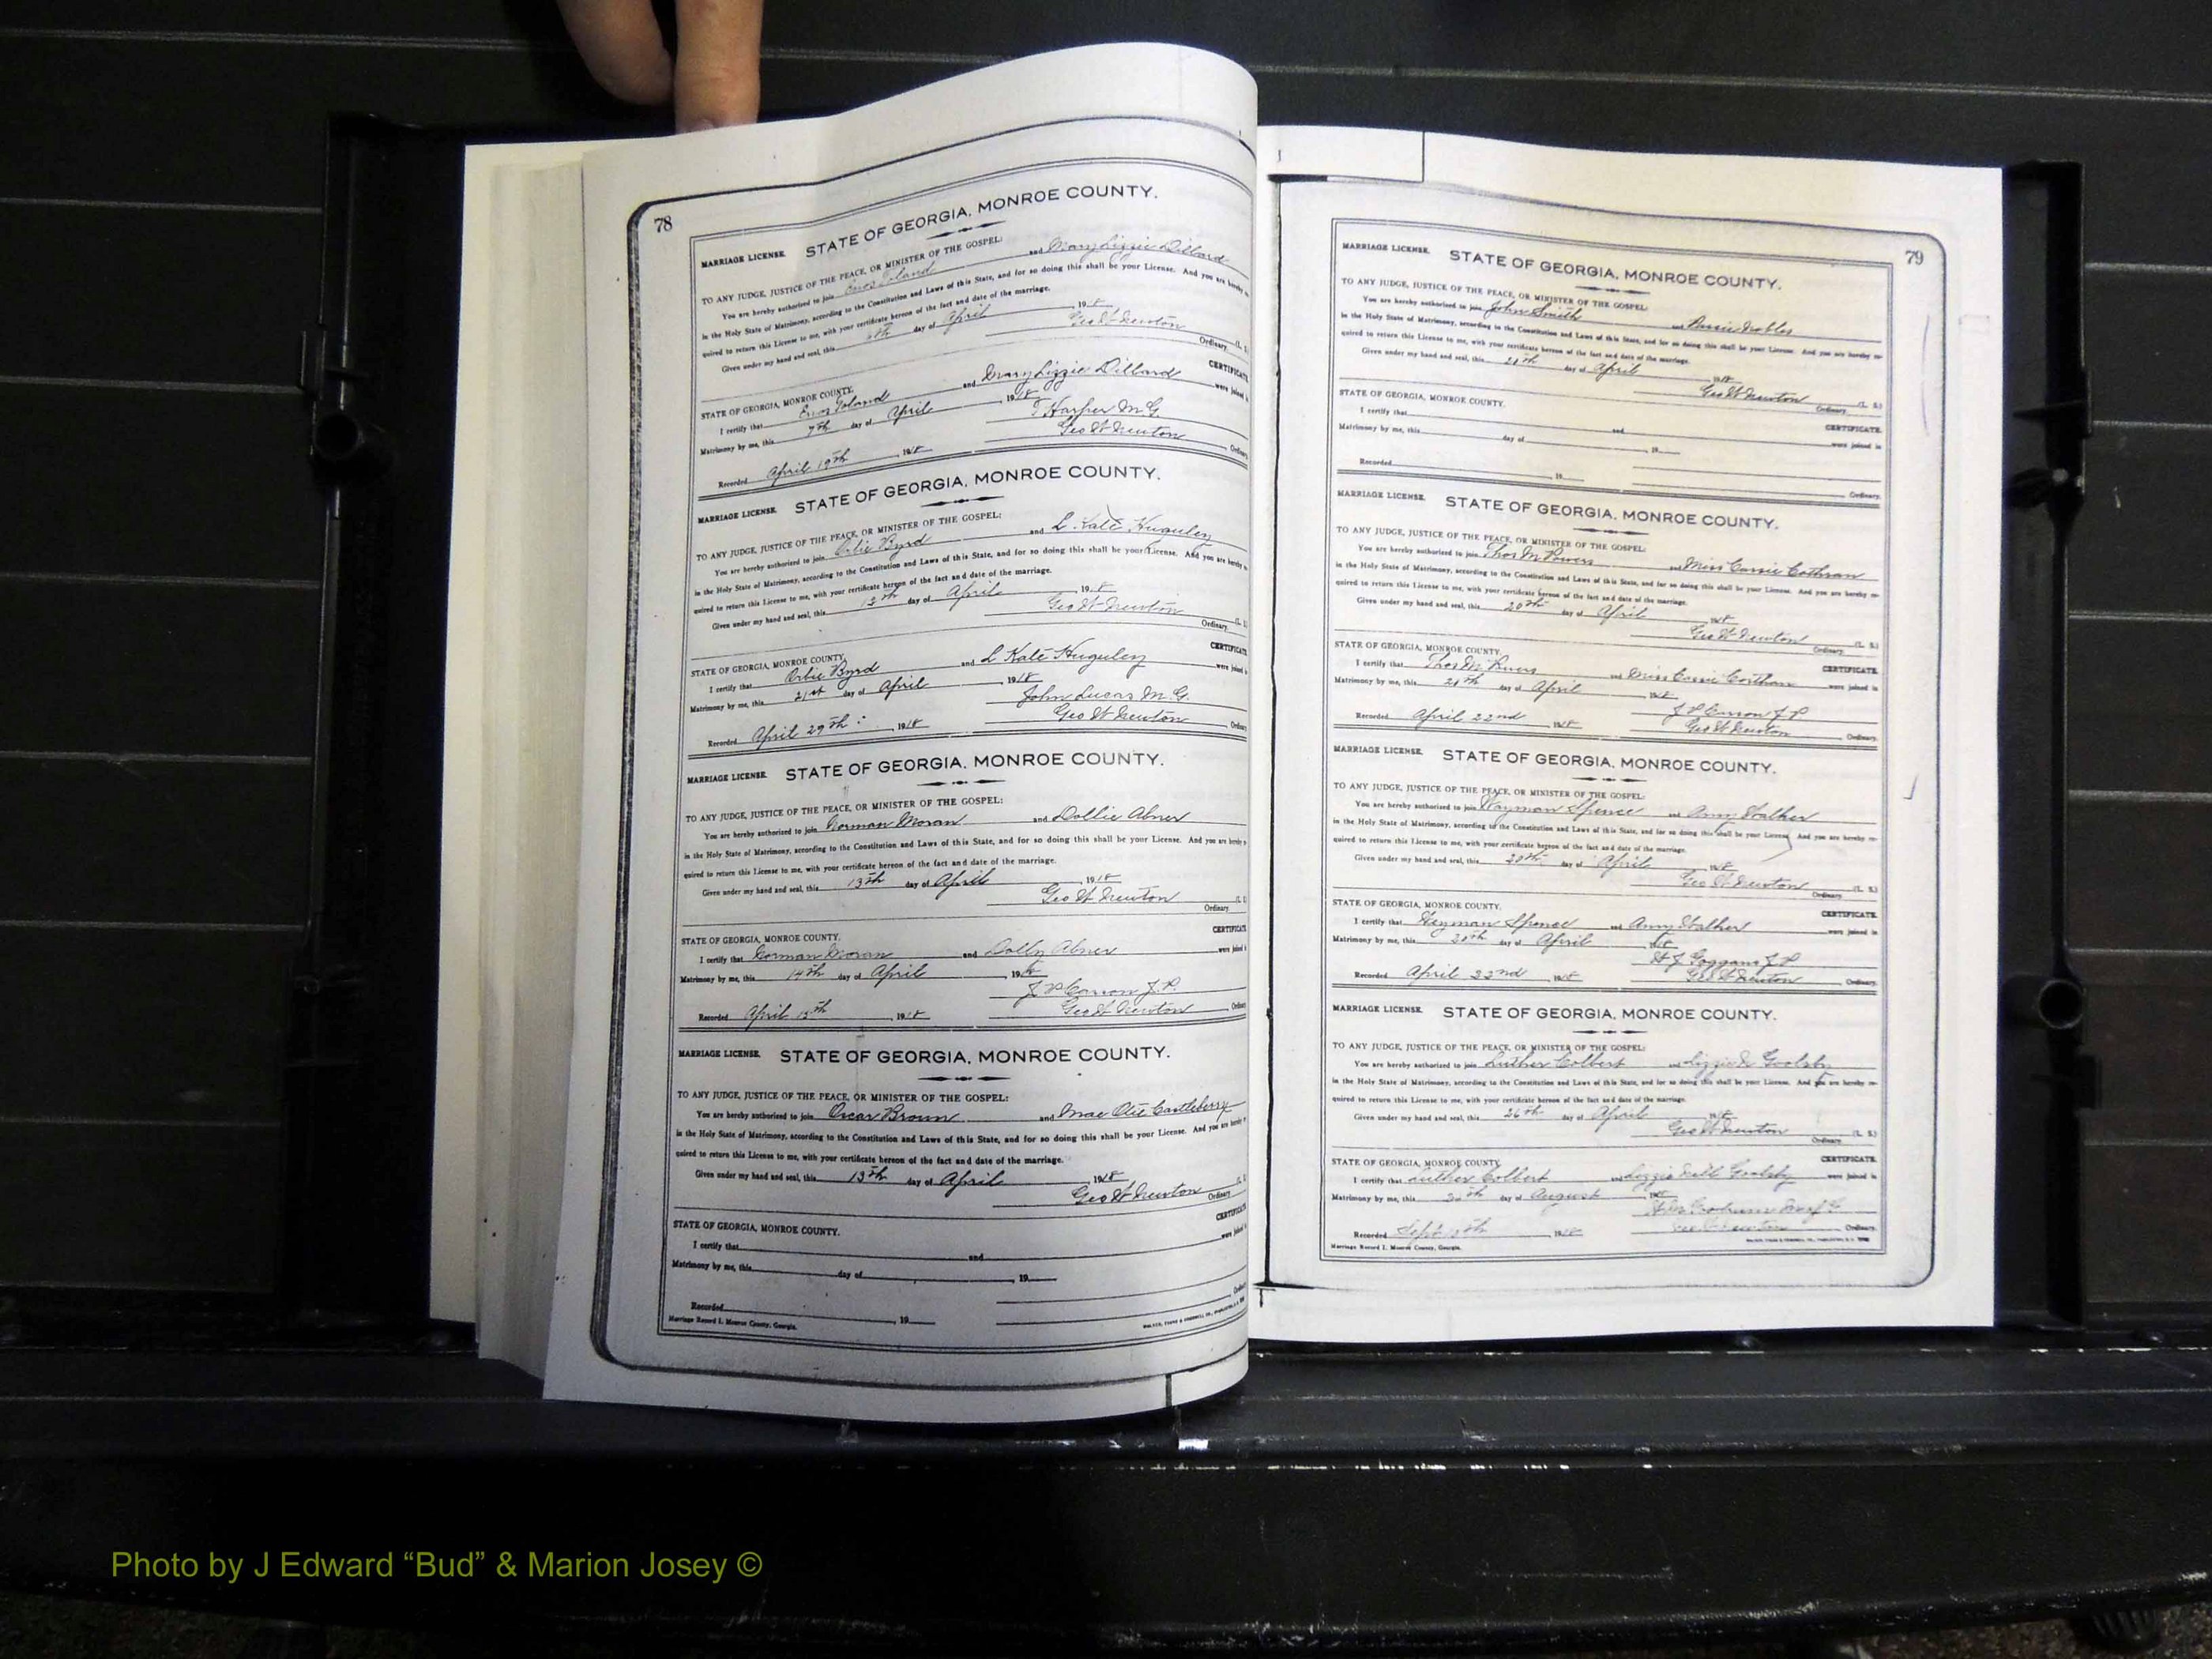 78
MARRIAGE LICENSE. STATE OF GEORGIA, MONROE COUNTY.
TO ANY JUDGE, JUSTICE OF THE PEACE, OR MINISTER OF THE GOSPEL:
You are hereby authorized to join Enos Toland and Mary Lizzie Dillard
in the Holy State of Matrimony, according to the Constitution and Laws of this State, and for so doing this shall be your License. And you are hereby
quired to return this License to me, with your certificate hereon of the fact and date of the marriage.
Given under my hand and seal, this 6th day of April 1918
Geo W Newton
Ordinary.
STATE OF GEORGIA, MONROE COUNTY. CERTIFICATE
I certify that Enos Toland and Mary Lizzie Dillard were joined i
Matrimony by me, this 7th day of April 1918
Harper M. G.
Recorded April 19th, 1918 Geo W Newton Ordin
MARRIAGE LICENSE. STATE OF GEORGIA, MONROE COUNTY.
TO ANY JUDGE, JUSTICE OF THE PEACE, OR MINISTER OF THE GOSPEL:
You are hereby authorized to join Orbie Byrd and L Kate Huguley
in the Holy State of Matrimony, according to the Constitution and Laws of this State, and for so doing this shall be your License. And you are hereby
quired to return this License to me, with your certificate hereon of the fact and date of the marriage.
Given under my hand and seal, this day of April 1918
Geo W Newton
Ordinary.
STATE OF GEORGIA, MONROE COUNTY. CERTIFICATE
I certify that Orbie Byrd and L Kate Huguley were joined i
Matrimony by me, this 21st day of April 1918
John Lucas M. G.
Recorded April 29th, 1918 Geo W Newton Ordin
MARRIAGE LICENSE. STATE OF GEORGIA, MONROE COUNTY.
TO ANY JUDGE, JUSTICE OF THE PEACE, OR MINISTER OF THE GOSPEL:
You are hereby authorized to join Gorman Moran and Dollie Abner
in the Holy State of Matrimony, according to the Constitution and Laws of this State, and for so doing this shall be your License. And you are hereby
quired to return this License to me, with your certificate hereon of the fact and date of the marriage.
Given under my hand and seal, this 13th day of April, 1918
Geo W Newton
Ordinary.
STATE OF GEORGIA, MONROE COUNTY. CERTIFICATE
I certify that Gorman Moran and Dolly Abner were joined i
Matrimony by me, this 14th day of April, 1918
J P Carson J. P.
Recorded April 15th, 1918 Geo W Newton, Ordinar
MARRIAGE LICENSE. STATE OF GEORGIA, MONROE COUNTY.
TO ANY JUDGE, JUSTICE OF THE PEACE, OR MINISTER OF THE GOSPEL:
You are hereby authorized to join Oscar Brown and Mae Otie Castleberry
in the Holy State of Matrimony, according to the Constitution and Laws of this State, and for so doing this shall be your License. And you are hereby
quired to return this License to me, with your certificate hereon of the fact and date of the marriage.
Given under my hand and seal, this 13th day of April, 1918
Geo W Newton Ordinary
STATE OF GEORGIA, MONROE COUNTY. CERTIFICATE
I certify that and were joined i
Matrimony by me, this day of, 19
Recorded, 19 Ordin
Marriage Record I. Monroe County, Georgia.
79
MARRIAGE LICENSE. STATE OF GEORGIA, MONROE COUNTY.
TO ANY JUDGE, JUSTICE OF THE PEACE, OR MINISTER OF THE GOSPEL:
You are hereby authorized to join John Smith and Nobles
in the Holy State of Matrimony, according to the Constitution and Laws of this State, and for so doing this shall be your License. And you are hereby re-
quired to return this License to me, with your certificate hereon of the fact and date of the marriage.
Given under my hand and seal, this 20th day of April, 1918
Geo W Newton (L. S.)
Ordinary.
STATE OF GEORGIA, MONROE COUNTY. CERTIFICATE.
I certify that and were joined in
Matrimony by me, this day of, 19
Recorded, 19 Ordinary.
MARRIAGE LICENSE. STATE OF GEORGIA, MONROE COUNTY.
TO ANY JUDGE, JUSTICE OF THE PEACE, OR MINISTER OF THE GOSPEL:
You are hereby authorized to join Thos M Powers and Miss Cassie Cothran
in the Holy State of Matrimony, according to the Constitution and Laws of this State, and for so doing this shall be your License. And you are hereby re-
quired to return this License to me, with your certificate hereon of the fact and date of the marriage.
Given under my hand and seal, this 20th day of April, 1918
Geo W Newton (L. S.)
Ordinary.
STATE OF GEORGIA, MONROE COUNTY. CERTIFICATE.
I certify that Thos M. Powers and Miss Cassie Cothran were joined in
Matrimony by me, this 21th day of April, 1918
J P Carson J P
Recorded April 22nd, 1918 Geo W Newton Ordinary.
MARRIAGE LICENSE. STATE OF GEORGIA, MONROE COUNTY.
TO ANY JUDGE, JUSTICE OF THE PEACE, OR MINISTER OF THE GOSPEL:
You are hereby authorized to join Wayman Spence and Amy Walker
in the Holy State of Matrimony, according to the Constitution and Laws of this State, and for so doing this shall be your License. And you are hereby re-
quired to return this License to me, with your certificate hereon of the fact and date of the marriage.
Given under my hand and seal, this 20th day of April, 1918
Geo W Newton (L. S.)
Ordinary.
STATE OF GEORGIA, MONROE COUNTY. CERTIFICATE.
I certify that Wayman Spence and Amy Walker were joined in
Matrimony by me, this 20th day of April, 1918
W J Goggans J P
Recorded April 22nd, 1918 Geo W Newton Ordinary.
MARRIAGE LICENSE. STATE OF GEORGIA, MONROE COUNTY.
TO ANY JUDGE, JUSTICE OF THE PEACE, OR MINISTER OF THE GOSPEL:
You are hereby authorized to join Luther Colbert and Lizzie N Goolsby
in the Holy State of Matrimony, according to the Constitution and Laws of this State, and for so doing this shall be your License. And you are hereby re-
quired to return this License to me, with your certificate hereon of the fact and date of the marriage.
Given under my hand and seal, this 26th day of April, 1918
Geo W Newton (L. S.)
Ordinary.
STATE OF GEORGIA, MONROE COUNTY. CERTIFICATE.
I certify that Luther Colbert and Lizzie Nell Goolsby were joined in
Matrimony by me, this 30th day of August, 1918
Recorded Sept, 1918 Geo W Newton Ordinary.
Marriage Record I. Monroe County, Georgia.
Photo by J Edward “Bud” & Marion Josey ©